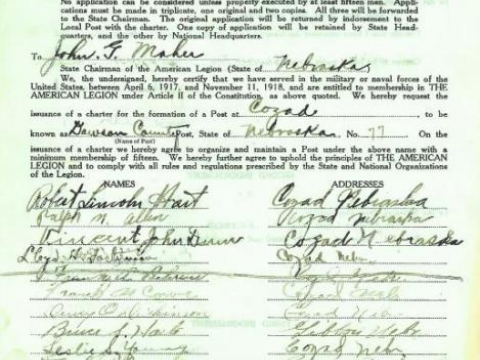 No application can be considered unless properly executed by at least fifteen men. Appli-
cations must be made in triplicate, one original and two copies. All three will be forwarded
to the State Chairman. The original application will be returned by indorsement to the
Local Post with the charter. One copy of application will be retained by State Head-
quarters, and the other by National Headquarters.
To John G. Maher
State Chairman of the American Legion (State of Nebraska
We, the undersigned, hereby certify that we have served in the military or naval forces of the
United States, between April 6, 1917, and November 11, 1918, and are entitled to membership in THE
AMERICAN LEGION under Article II of the Constitution, as above quoted. We hereby request
issuance of a charter for the formation of a Post at Cozad to be
known as Dawson County Post, State of Nebraska, No. 77 On the
(Name of Post)
issuance of the charter we hereby agree to organize and maintain a Post under the above name with a
minimum membership of fifteen. We hereby further agree to uphold the principles of THE AMERICAN
LEGION and to comply with all rules and regulations prescribed by the State and National Organizations
of the Legion.
NAMES ADDRESSES
Robert Lincoln Hart Cozad Nebraska
Ralph N. Allen Cozad Nebraska
Vincent John Cozad Nebraska
Lloyd Cozad Nebr
Frank M Cozad Nebr
Cozad Nebr
Bruce Gibbon Nebr
Leslie Young Cozad Nebr